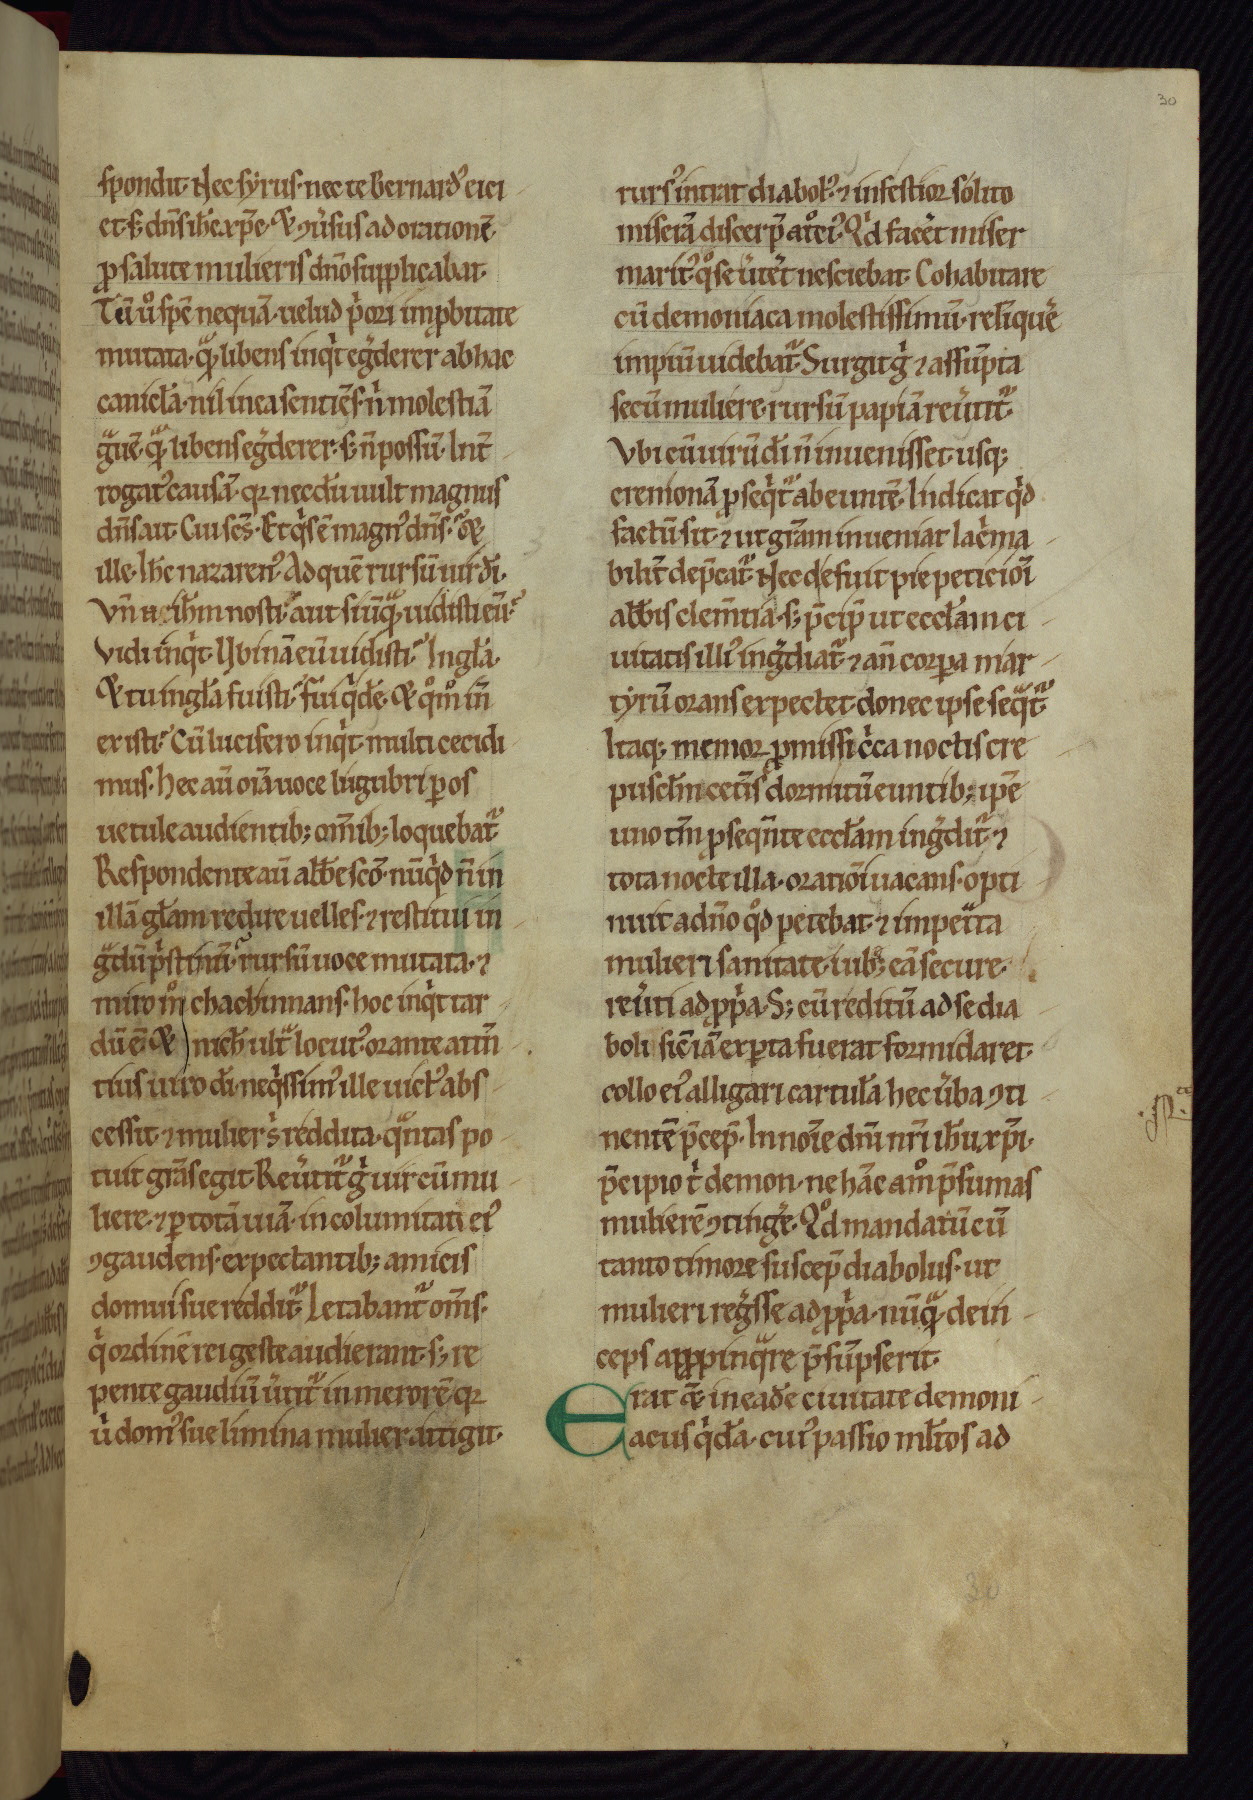 30
spondit· Nec syrus· nec te bernardꝰ eici
et· s; dn̄s ih̄c xp̄c· Et ꝯu̓sus ad orationē
ꝓ salute mulieris dn̄o supplicabat·
Tū ů sp̄c nequā· uelud p̓ori imꝓbitate
mutata· qͣꝫ libens inqͥt eg̓derer ab hac
canicl̄a· nil in ea sentiēs· n̓ molestiā
gͣuē· qͣꝫ libens eg̓derer· s; n̄ possū· Int̄
rogatꝰ causā· qꝛ necdū uult magnus
dn̄s ait· Cui sc̄s· Et qͥs ē magnꝰ dn̄s· Et
ille· Ih̄c nazarenꝰ· Ad quē rursū uir dī·
Vn̄ n ih̄m nosti· aut si ūqͣꝫ uidisti eū·
Vidi inqͥt· Ubi nā eū uidisti· In gl̄a·
Et tu in gl̄a fuisti· fui qͥdē· Et qͦmͦ in̄
existi· Cū lucifero inqͥt multi cecidi
mus· hec aū oīa uoce lugubri ꝑ os
uetule audientib; om̄ib; loquebat̄ᷣ
Respondente aū abb̄e sc̄o· nūqͥd n̄ in
illā gl̄am redire uelles· ⁊ restitui in
gͣdū pͥstinū· rursū uoce mutata· ⁊
miro mͦ chachinnans· hoc inqͥt tar
dū ē· Et nich̄ ult̄ᷓ locutꝰ· orante attn̄
tius uiro dī· neqͥssimꝰ ille uictꝰ abs
cessit· ⁊ mulier s̓ reddita· qͣntas po
tuit grās egit· Reu̓tit̄ᷣ g̓ uir cū mu
liere· ⁊ ꝑ totā uiā· in columitati eiꝰ
ꝯgaudens· expectantib; amicis
domui sue reddit̄ᷣ· Letabant̄ᷣ om̄s·
qͥ ordinē rei geste audierant· s; re
pente gaudiū u̓tit̄ᷣ in merorē· qꝛ
u̓ domꝰ sue limina mulier attigit·
rursꝰ intrat diabolꝰ· ⁊ infestior solito
miserā discerp̄ attēꝰ· Qͥd facer̄t miser
maritꝰ· qͦ se u̓ter̄t nesciebat· Cohabitare
cū demoniaca molestissimū· reliq̄ue̓
impiū uidebat̄ᷣ· Surgit g̓ ⁊ assūpta
secū muliere· rursū papiā reu̓tit̄ᷣ·
Vbi cū uirū dī n̄ inuenisset· usq;
cremonā ꝓseqͥt̄ᷣ abeuntē· Indicat qͥd
factū sit· ⁊ ut grām inueniat lac̓ma
bilit̄ dep̄cat̄ᷣ· Nec defuit pie peticiōi
abb̄is clem̄tia· s; p̄cip̄ ut eccl̄am ci
uitatis illiꝰ ing̓diat̄ᷣ· ⁊ an̄ corꝑa mar
tyrū orans expectet· donec ipse seqͣt̄ᷣ·
Itaq; memor ꝓmissi c̓ca noctis cre
puscl̄m cet̄is dormitū euntib; ip̄e
uno tm̄ ꝑseqn̄te eccl̄am ing̓dit̄ᷣ· ⁊
tota nocte illa· oratiōi uacans· opti
nuit a dn̄o qͦd petebat· ⁊ impet̄ᷓta
mulieri sanitate· iubꝫ eā secure
reu̓ti ad ꝓpͥa· S; cū reditū ad se dia
boli sic̄ iā exꝑta fuerat formidaret·
collo eiꝰ alligari cartulā hec u̓ba ꝯti
nentē p̄cep̄· In noīe dn̄i nr̄i ih̄u xp̄i·
p̄cipio tͥ demon· ne hāc amͦ p̄sumas
mulierē ꝯtinge̓· Qͦd mandatū cū
tanto timore suscep̄ diabolus· ut
mulieri reg̓sse ad ꝓpͥa· nūqͣꝫ dein
ceps apꝓpinqͣre p̄sūpserit·
Erat qͦꝫ in eadē ciuitate demoni
acus qͥdā· cuiꝰ passio ml̄tos ad
30